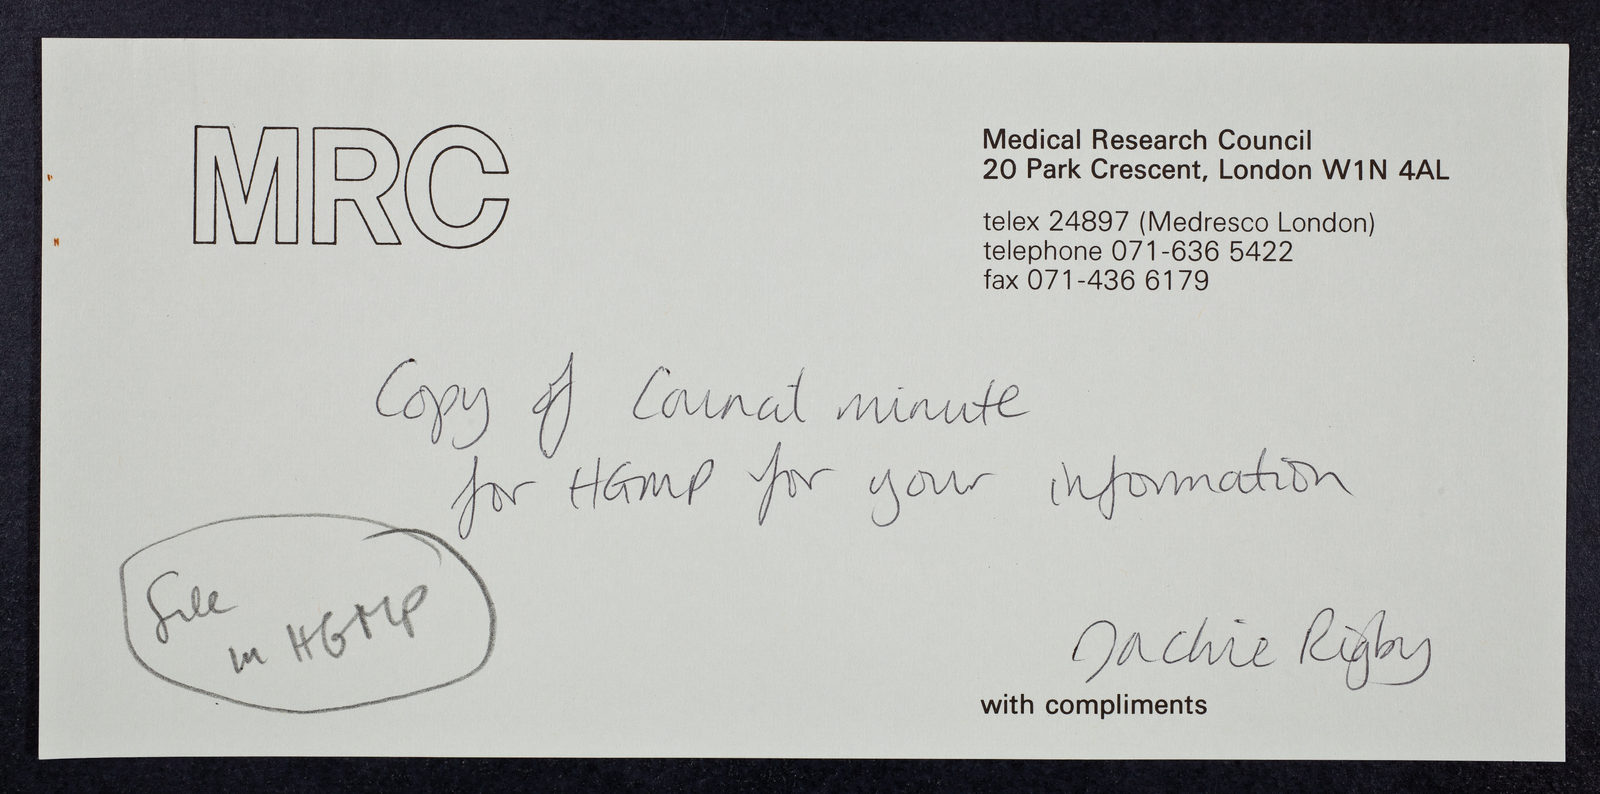 MRC
Medical Research Council
20 Park Crescent, London W1N 4AL
telex 24897 (Medresco London)
telephone 071-636 5422
fax 071-436 6179
Copy of Council minute
for HGMP for your information
File
in HGMP
Jackie Rigby
with compliments